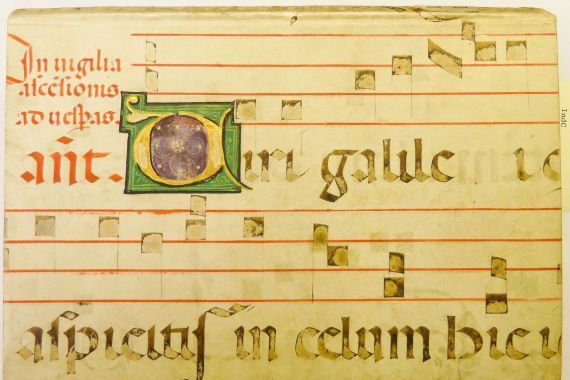 In uigilia
ascēsionis
ad uesp̄as.
an̄t. Viri galile
aspicitis in celum hic